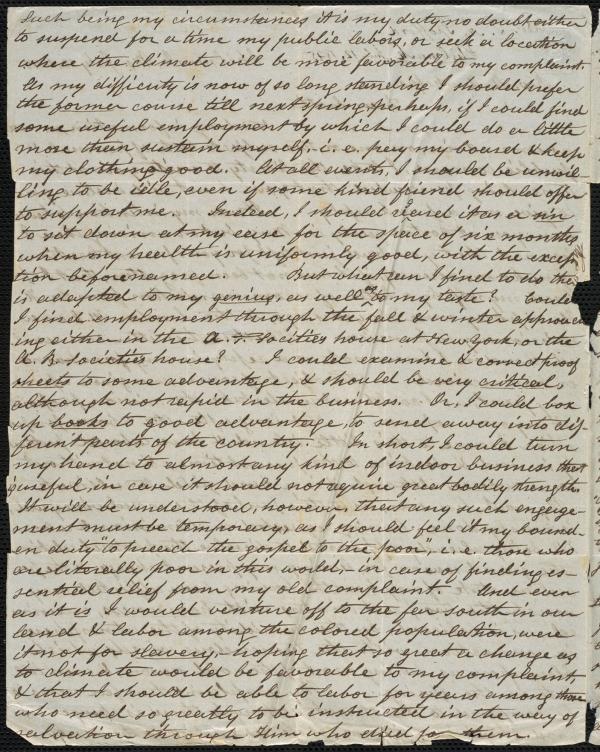 Such being my circumstances it is my duty no doubt either
to suspend for a time my public labors, or seek a location
where the climate will be more favorable to my complaint.
As my difficulty is now of so long standing I should prefer
the former course till next spring, perhaps, if I could find
some useful employment by which I could do a little
more than sustain myself. i. e. pay my board & keep
my clothing good. At all events, I should be unwil
ling to be idle, even if some kind friend should offer
to support me. Indeed, I should regard it as a sin
to sit down at my ease for the space of six months
when my health is uniformly good, with the excep
tion before named. But what can I find to do that
is adapted to my genius, as well as to my taste? Could
I find employment through the fall & winter approach
ing either in the A. T. Socities house at New York, or the
A. B. Societies house? I could examine & correct proof
sheets to some advantage, & should be very critical,
although not rapid in the business. Or, I could box
up books to good advantage, to send away into dif
ferent parts of the country. In short, I could turn
my hand to almost any kind of indoor business that
is useful, in case it should not require great bodily strength.
It will be understood, however, that any such engage-
ment must be temporary, as I should feel it my bound-
en duty "to preach the gospel to the poor", i. e. those who
are literally poor in this world, in case of finding es-
sential relief from my old complaint. And even
as it is I would venture off to the far south in our
land & labor among the colored population, were
it not for slavery, hoping that so great a change as
to climate would be favorable to my complaint
& that I should be able to labor for years among those
who need so greatly to be instructed in the way of
salvation through Him who died for them.